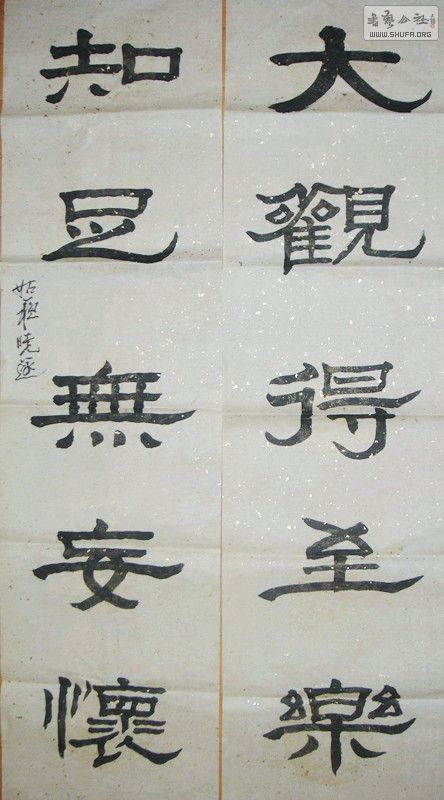 書藝公社
WWW.SHUFA.ORG
大觀得至樂
知足無妄懷
姑蘇曉